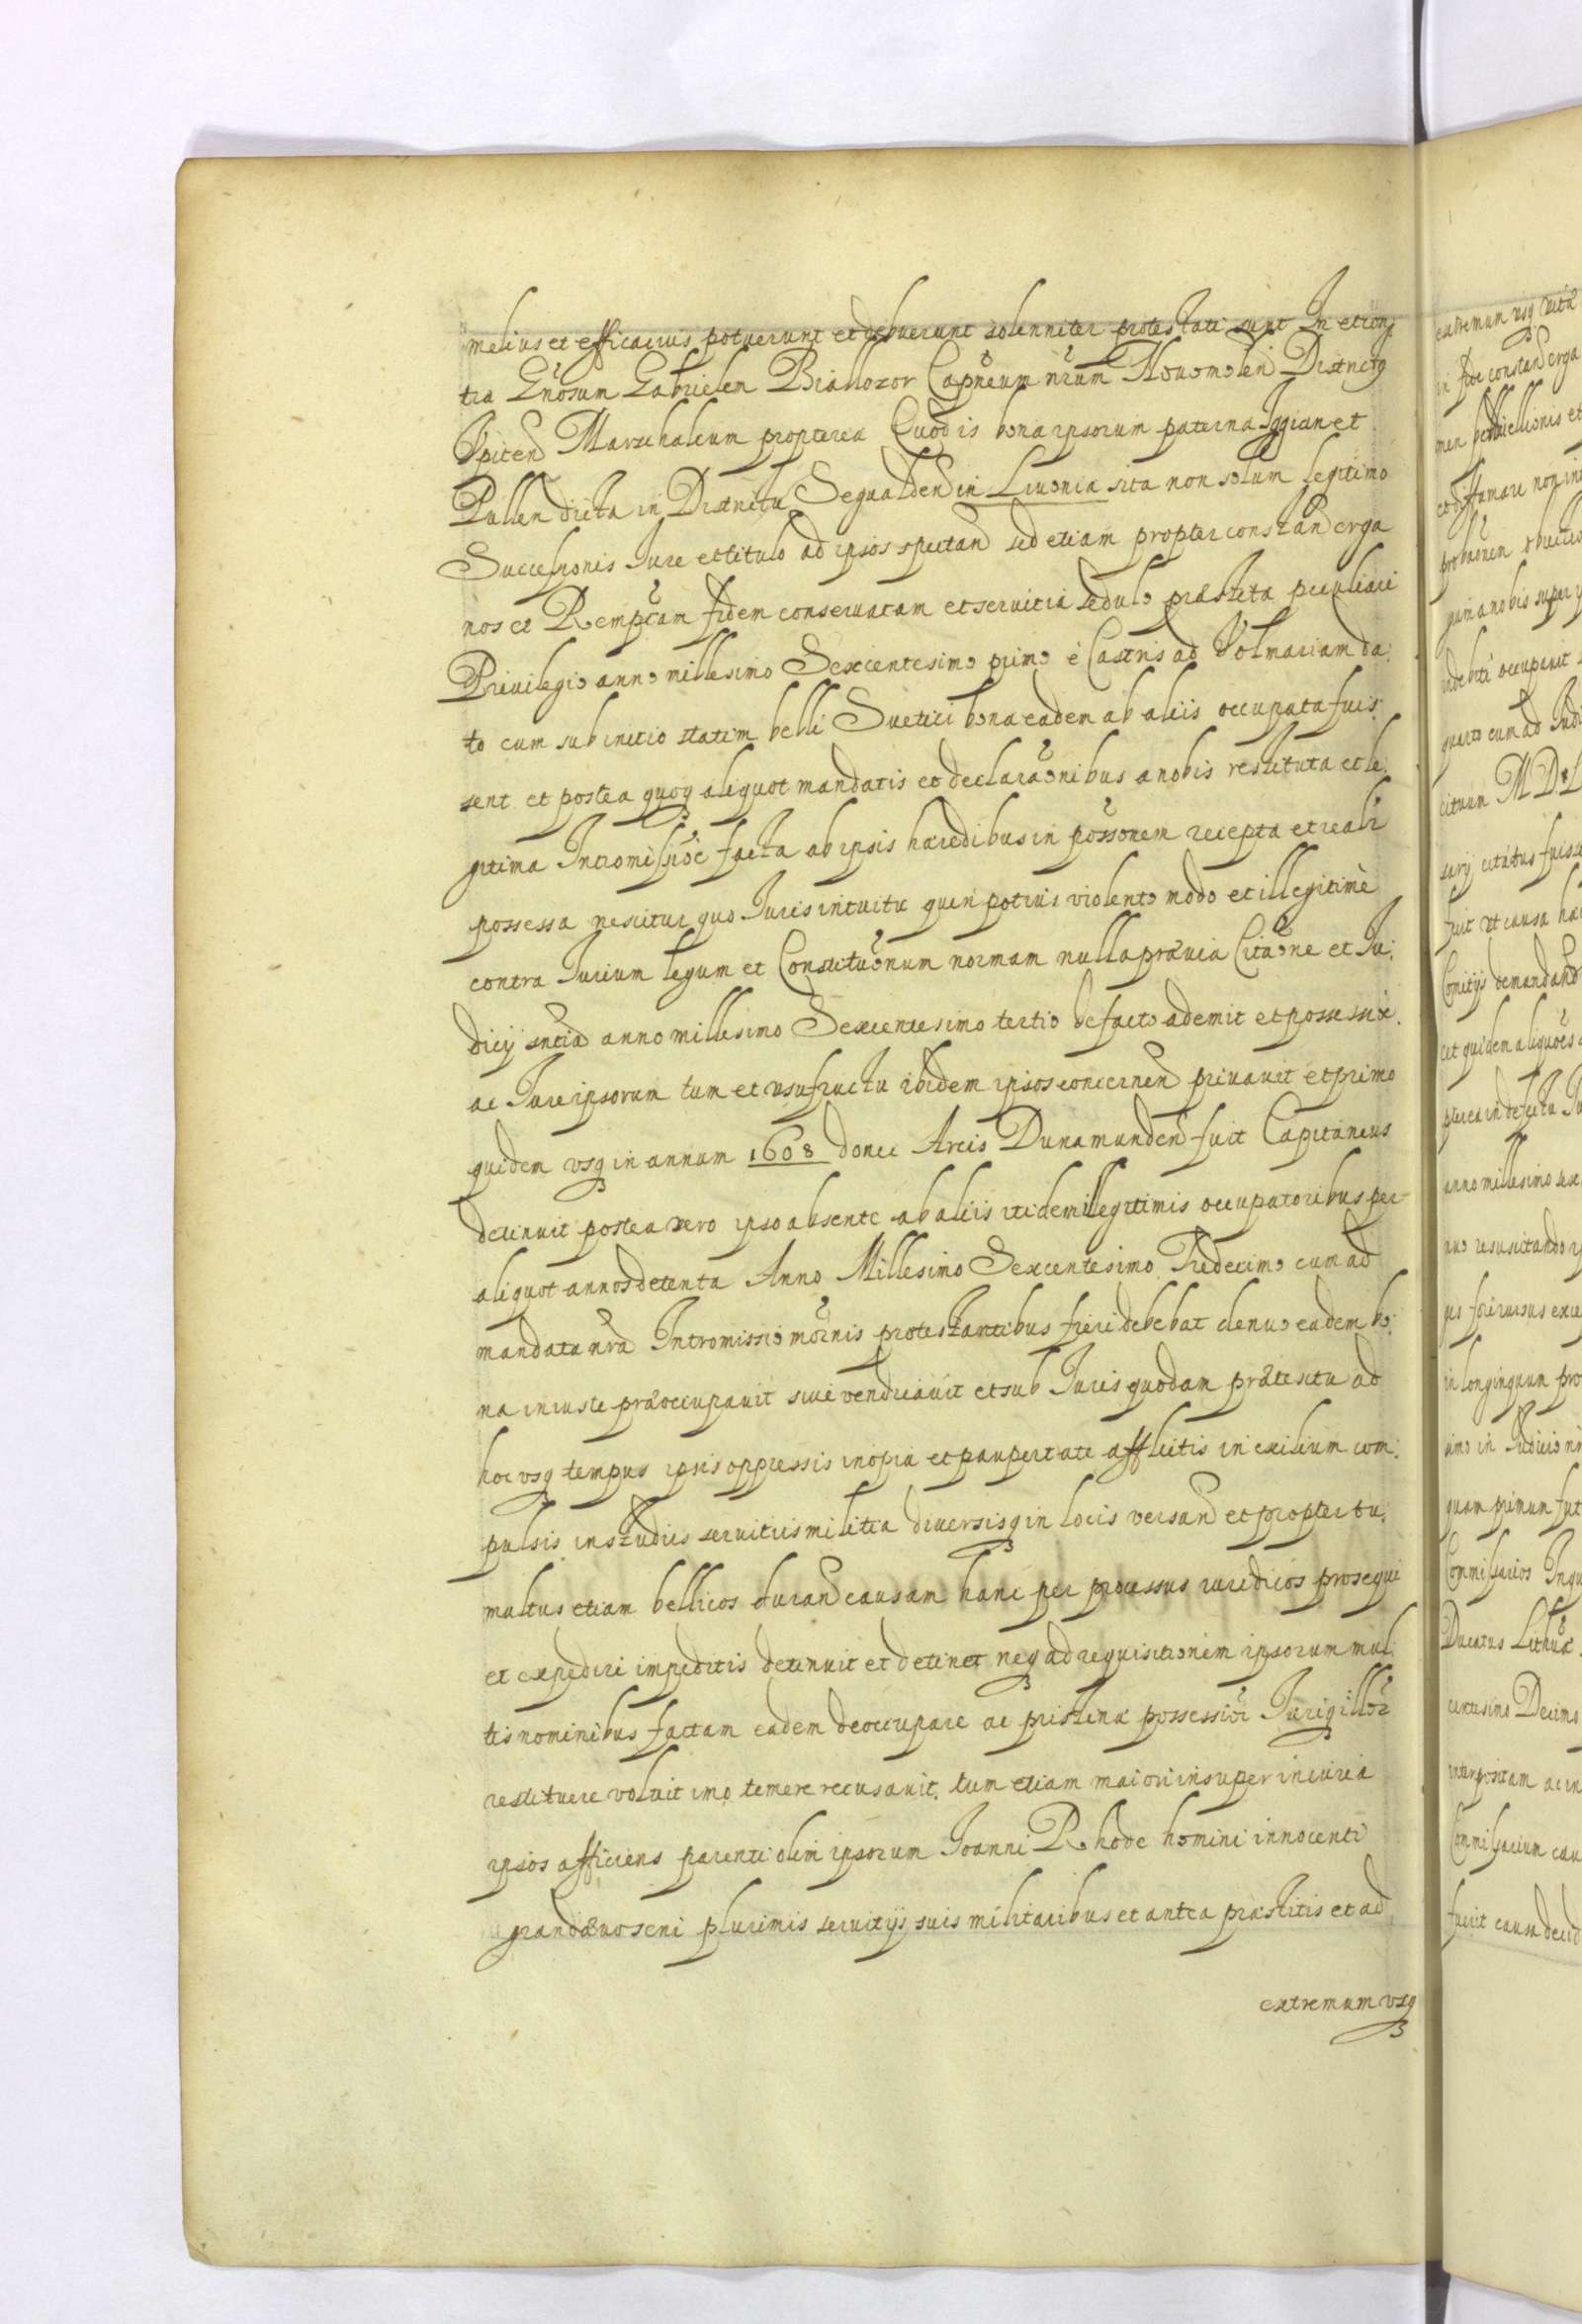 melius et efficacius potuerunt et debuerunt solenniter protestati sunt In et con=
tra Gnosum Gabrielem Biallozor Capneum nrum Nouomolen Districtq
Vpiten Marschalcum propterea Quod is bona ipsorum paterna Iggian et
Pullen dicta in Districtu Segualden in Liuonia sita non solum legitimo
Successionis Iure et titulo ad ipsos spectand sed etiam propter constan erga
nos et Rempcam fidem conseruatam et seruitia sedulo præstita peculiari
Priuilegio anno millesimo Sexcentesimo primo è Castris ad Volmariam da:
to cum sub initio statim belli Suetici bona eadem ab aliis occupata fuis:
sent et postea quoq aliquot mandatis et declaraonibus a nobis restituta et le:
gitima Intromissioe facta ab ipsis hæredibus in possonem recepta et reali
possessa nescitur quo Iuris intuitu quin potius violento modo et illegitimè
contra Iurium legum et Constituonum normam nulla præuia Citaone et Iu:
dicij sntia anno millesimo Sexcentesimo tertio de facto ademit et possessioe
ac Iure ipsorum tum et vsufructu ibidem ipsos concernen priuauit et primo
quidem vsq in annum 1608 donec Arcis Dunamunden fuit Capitaneus
detinuit postea vero ipso absente ab aliis itidem illegitimis occupatoribus per
aliquot annos detenta Anno Millesimo Sexcentesimo Tredecimo cum ad
mandata nra Intromissio protestantibus fieri debebat denuo eadem bo:
na iniuste præoccupauit siue vendicauit et sub Iuris quodam prætextu ad
hoc vsq tempus ipsis oppressis inopia et paupertate afflictis in exilium com:
pulsis in studiis seruitiis militia diuersisq in locis versand et propter tu:
multus etiam bellicos duran causam hanc per processus iuridicos prosequi
et expediri impeditis detinuit et detinet neq ad requisitionem ipsorum mul:
tis nominibus factam eadem deoccupare ac pristinæ possessioi Iuriq illor
restituere voluit imo temere recusauit, tum etiam maiori insuper iniuria
ipsos afficiens parenti olim ipsorum Ioanni Rhode homini innocenti
grandæuo seni plurimis seruitijs suis militaribus et antea præstitis et ad
extremum vsq